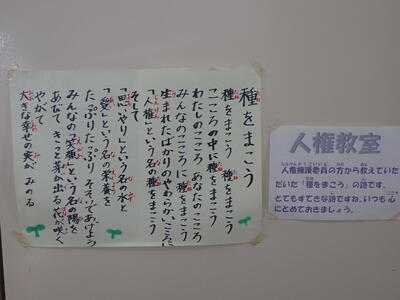 種をまこう
種をまこう　種をまこう
こころの中に種をまこう
わたしのこころ　あなたのこころ
みんなのこころに種をまこう
生まれたばかりのやわらかいこころに
「人権」という名の種をまこう
そして
「思いやり」という名の水と
「愛」という名の栄養を
たっぷりたっぷり　そそいであげよう
みんなの「笑顔」という名の陽を
あびて、きっと芽が出る　花が咲く
やがて
大きな幸せの実が　みのる
人権教室
人権擁護委員の方から教えていた
だいた「種をまこう」の詩です。
とてもすてきな詩ですね。いつも心
にとめておきましょう。